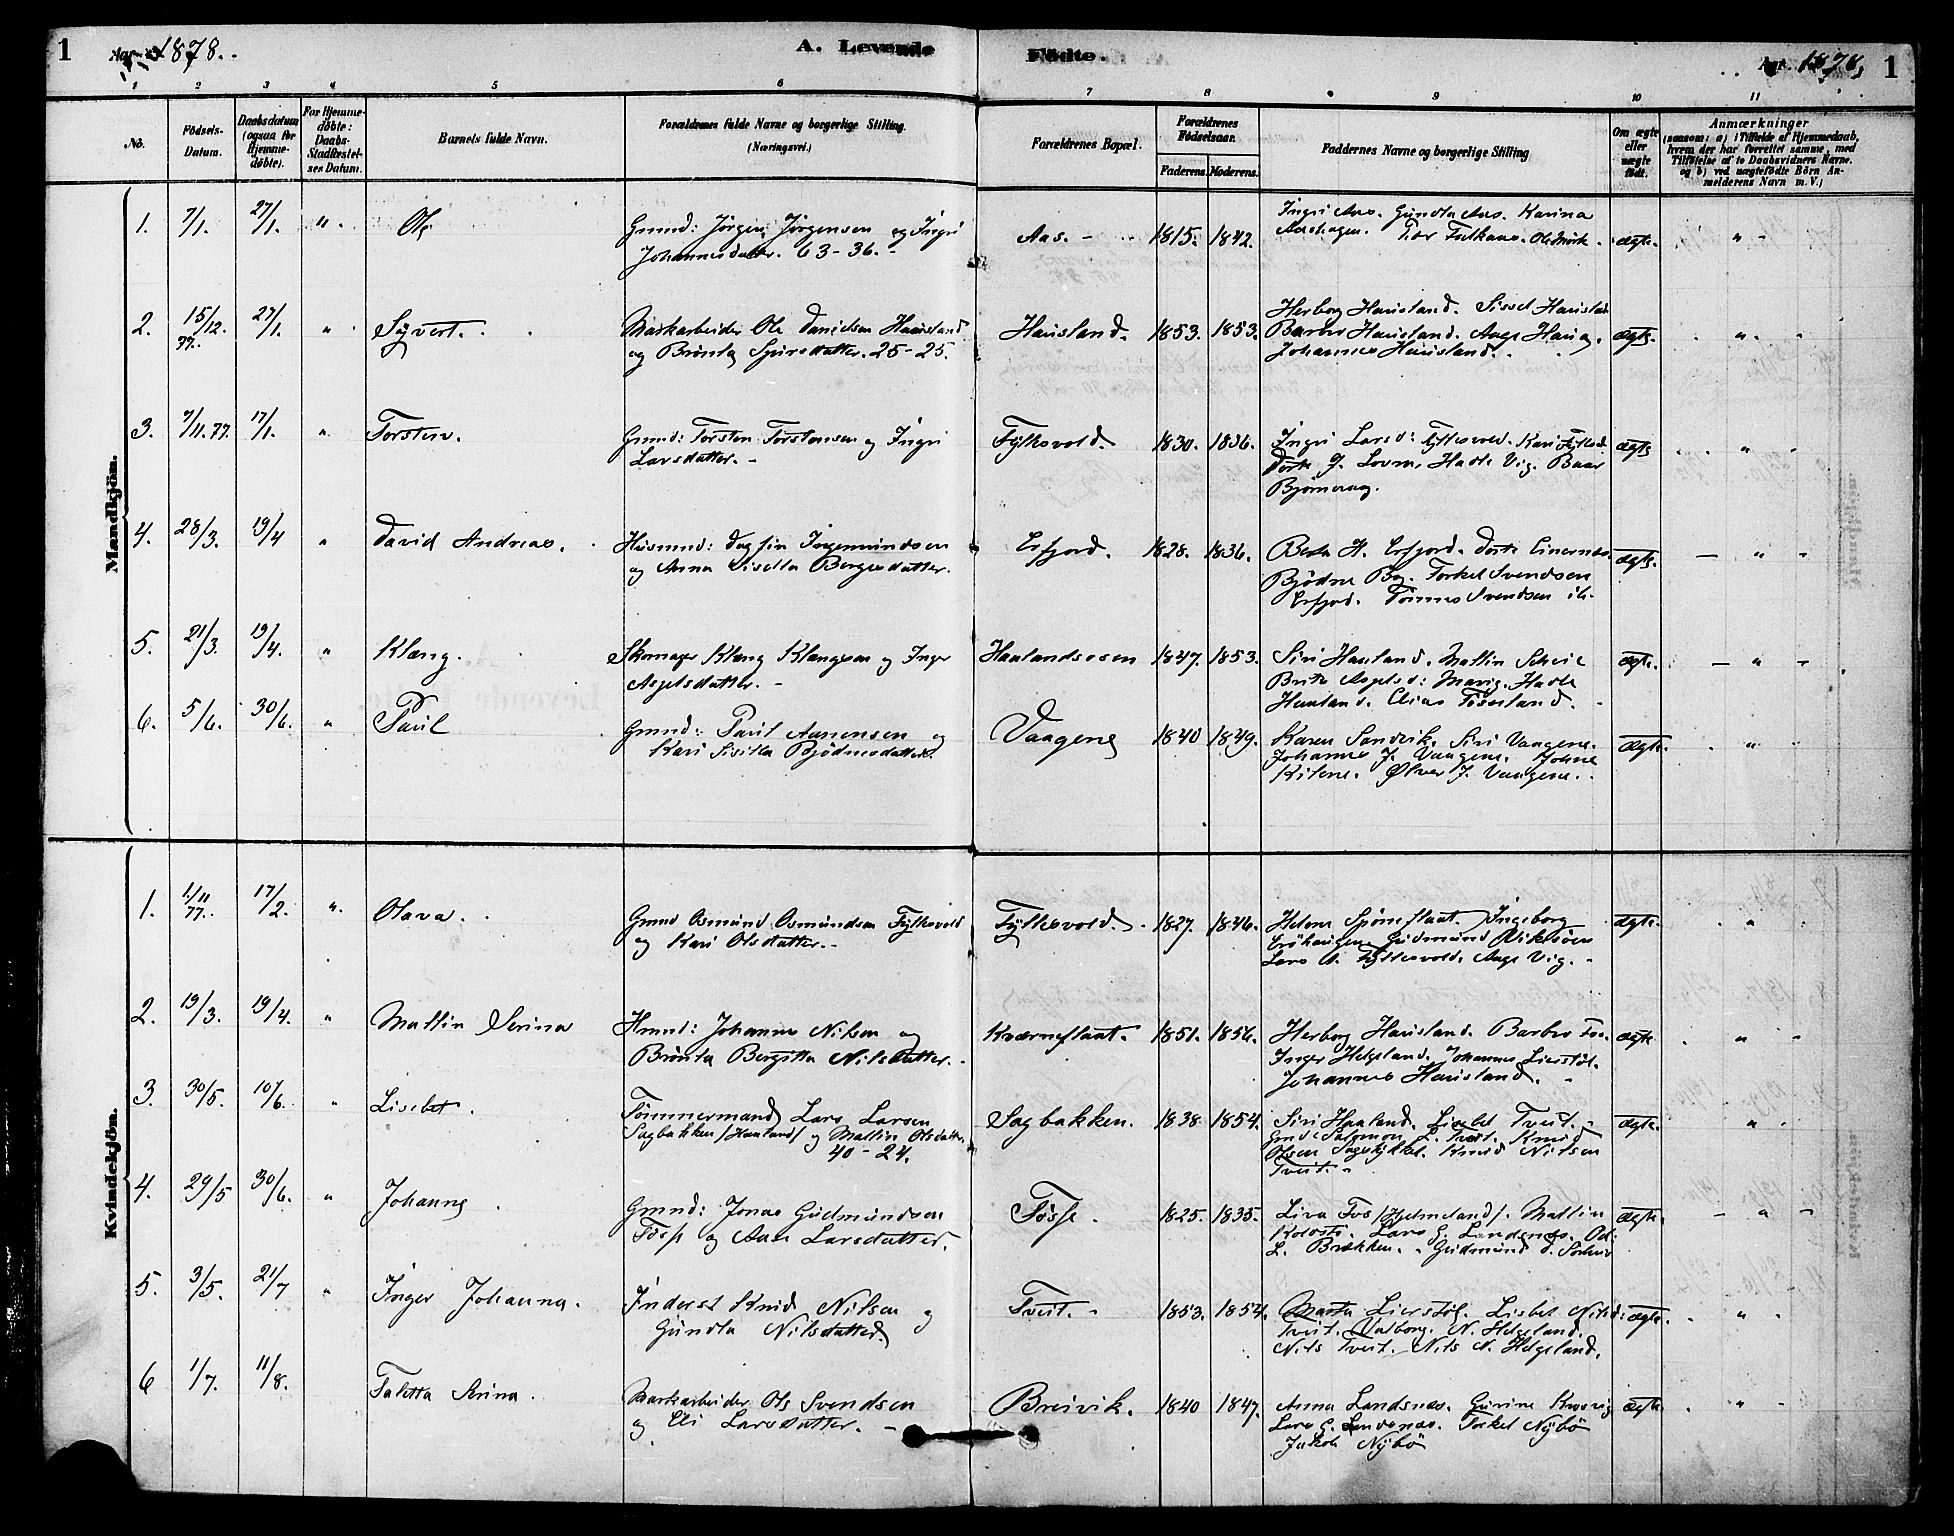 1 Aar 1878. A. Levende Födte. Aar 1878, 1
1 2 3 4 5 6 7 8 9 10 11
No.
Födsels-
Datum.
Daabsdatum
(ogsaa for
Hjemme-
döbte).
For Hjemme-
döbte:
Daabs-
Stadfæstel-
ses Datum.
Barnets fulde Navn.
Forældrenes fulde Navne og borgerlige Stilling.
(Næringsvei.)
Forældrenes Bopæl.
Forældrenes
Födselsaar.
Faderens. Moderens.
Faddernes Navne og borgerlige Stilling
Om ægte
eller
uægte
födt.
Anmærkninger
(saasom: a) i Tilfælde af Hjemmedaab,
hvem der har forrettet samme, med
Tilföielse af to Daabsvidners Navne.
og b) ved uægtefödte Börn An-
melderens Navn m. V.)
Mandkjön.
1. 7/1. 27/1. " Ole
Gmnd: Jørgen Jørgensen og Ingri
Johannesdatter. 63-36.-
Aas. - 1815. 1842.
Ingri Aas. Gundla Aas. Karina
Aashagen. Tor Ole Mork.
ægte. "
2. 15/12. 77. 27/1. " Syvert.
Markarbeider Ole Danielsen Hausland
og Brönla Sjursdatter. 25-25.
Hausland. 1853. 1853.
Herborg Hausland. Sissel Hausland
Barbro Hausland. Aage Haug.
Johannes Hausland.
ægte. "
3. 7/11. 77. 17/1. " Torsten.
Gmnd: Torsten Torstensen og Ingri
Larsdatter. -
Fylkesvold. 1830. 1836.
Ingri Larsd: Fylkesvold. Kari
Dorte J. Hadle Vig. Baar
ægte "
4. 28/3. 19/4 " David Andreas.
Husmnd: Dagfin Ingemundsen
og Anna Bergesdatter.
Erfjord. 1828. 1836.
Berta H. Erfjord. Dorte
Bjødne Bø. Torkel Svendsen
Erfjord. Tönnes Svendsen ib.
ægte. "
5. 21/3. 19/4. " Klæng.
Skomager Klæng Klængsen og Inger
Asgelsdatter. -
Haalandsosen 1847. 1853.
Siri Haaland. Mallin
Brita Asgelsd: Hadle
Haaland. Elias
ægte. "
6. 5/6. 30/6. " Paul
Gmnd: Paul Aanensen og
Kari Sisilla Bjødnesdatter.
Vaagene 1840 1849.
Karen Sandvik. Siri Vaagene.
Johannes J. Vaagene.
Kilene. Ølver J. Vaagene.
ægte. "
Kvindekjön.
1. 1/11 77. 17/2. " Olava.
Gmnd Osmund Osmundsen Fylkesvold
og Kari Olsdatter.-
Fylkesvold. 1827. 1846.
Helene Ingeborg
Gudmund
Lars A. Fylkesvold. Aage Vig. -
ægte. "
2. 19/3. 19/4. " Mallin Serina
Hmnd: Johannes Nilsen og
Brönla Bergitta Nilsdatter.
Kværneflaat. 1851. 1856.
Herborg Hausland. Barbro
Inger Helgeland. Johannes Lierstøl.
Johannes Hausland. -
ægte "
3. 30/5. 10/6. " Lisebet.
Tömmermand Lars Larsen
Sagbakken /Haaland/ og Mallin Olsdatter.
40-24.
Sagbakken. 1838 1854.
Siri Haaland. Lisebet Tveit. -
Gmd Salomon L. Tveit. Knud
Olsen Knud Nilsen
Tveit. -
ægte. "
4. 29/5 30/6. " Johanne
Gmnd: Jonas Gudmundsen
Fosse og Ane Larsdatter.
Fosse. 1825. 1835.
Liva Fos /Hjelmeland/. Mallin
Lars G. Landsnes.
L. Brækken. Gudmund
ægte. "
5. 3/5. 21/7 " Inger Johanna.
Inderst Knud Nilsen og
Gundla Nilsdatter
Tveit. - 1853. 1854.
Marta Lierstøl. Lisbet Nilsd:
Tveit. Valborg N. Helgeland.
Nils Tveit. Nils N. Helgeland.
ægte. "
6 1/7. 11/8. Taletta Serina.
Markarbeider Ole Svendsen
og Eli Larsdatter. -
Breivik. 1840 1847.
Anna Landsnes. Gurine
Lars G. Landsnes. Torkel Nybø
Jakob Nybø
ægte "